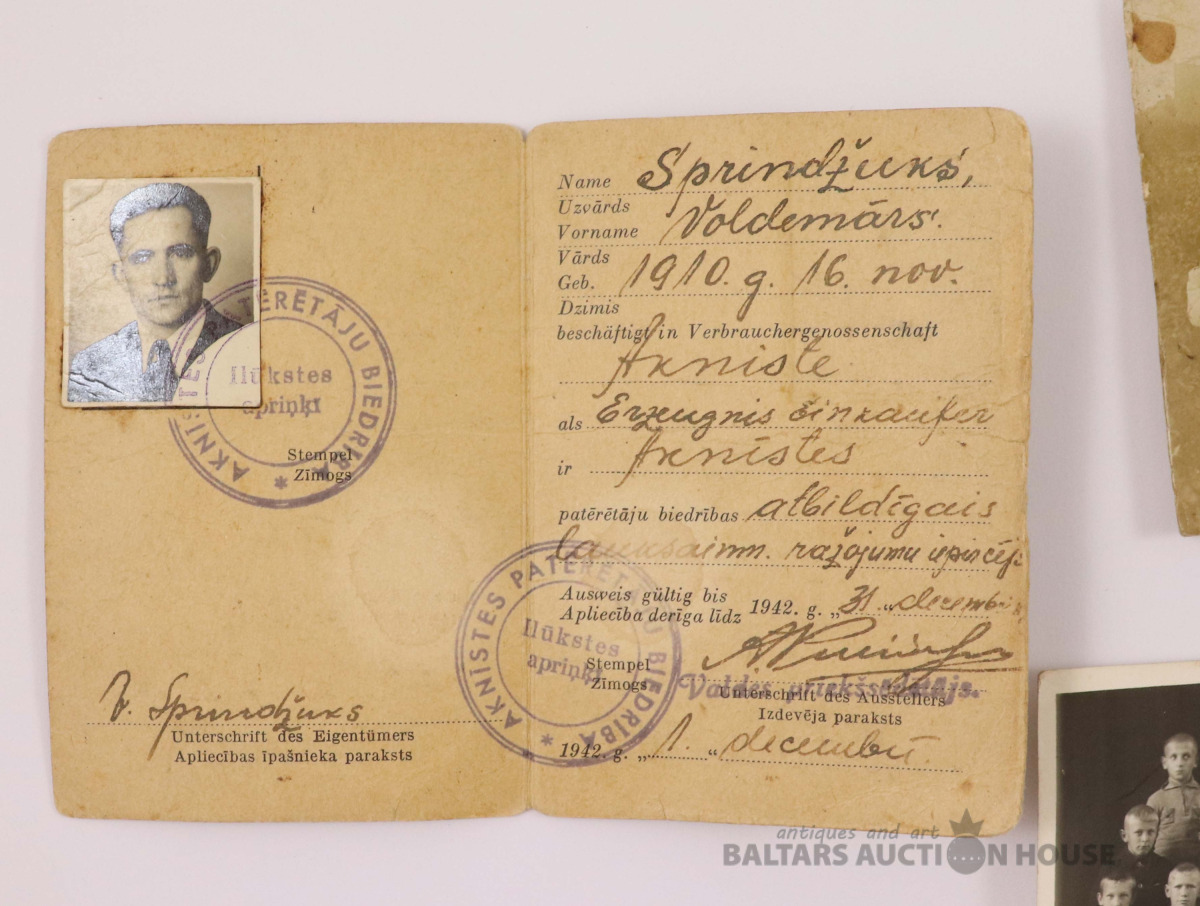 AKNĪSTES PATĒRĒTĀJU BIEDRĪBA *
Ilūkstes
apriņķī
Stempel
Zīmogs
V. Sprindžuks
Unterschrift des Eigentümers
Apliecības īpašnieka paraksts
Name Sprindžuks,
Uzvārds
Vorname Voldemārs.
Vārds
Geb. 1910. g. 16. nov.
Dzimis
beschäftigt in Verbrauchergenossenschaft
Akniste
als Erzeugnis einkaufer
ir Aknīstes
patērētāju biedrības atbildīgais
lauksaimn. ražojumu iepircējs
Ausweis gültig bis
Apliecība derīga līdz 1942. g. „31 “ decembrim
AKNĪSTES PATĒRĒTĀJU BIEDRĪBA *
Ilūkstes
apriņķī
Stempel
Zīmogs
Valdes priekšsēdētājs.
Unterschrift des Ausstellers
Izdevēja paraksts
1942. g. „ 1. “ decembrī.
antiques and art
BALTARS AUCTION HOUSE